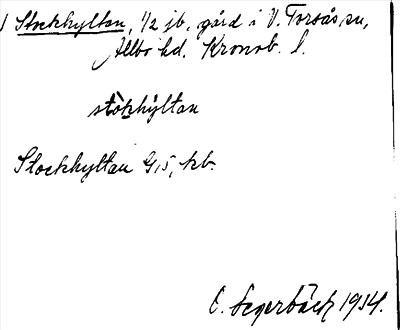 1 Stockhyltan, 1/2 jb. gård i V. Torsås sn,
Allbo hd. Kronob. l.
stòkhýltan
Stockhyltan G, 5, kb.
E. Segerbäck 1914.